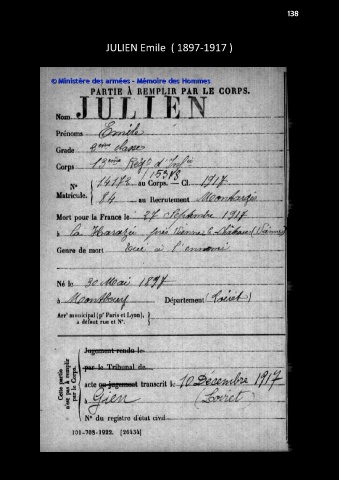 138
JULIEN Emile ( 1897-1917 )
© Ministère des armées - Mémoire des Hommes
PARTIE À REMPLIR PAR LE CORPS.
Nom JULIEN
Prénoms Emile
Grade 2ème classe
Corps 13ème Rég. d'Inf.ie
N° Matricule. 14172 /15378 au Corps. — Cl. 1917
84 au Recrutement Montargis
Mort pour la France le 27 Septembre 1917
à La Harazée près Vienne le Château (Marne)
Genre de mort Tué à l'ennemi
Né le 30 Mai 1897
à Département (Loiret)
Arr' municipal (p' Paris et Lyon),
à défaut rue et N°.
Cette partie n'est pas à remplir par le Corps.
Jugement rendu le
par le Tribunal de
acte ou jugement transcrit le 10 Décembre 1917
à Gien (Loiret)
N° du registre d'état civil
101-708-1922. [26434]